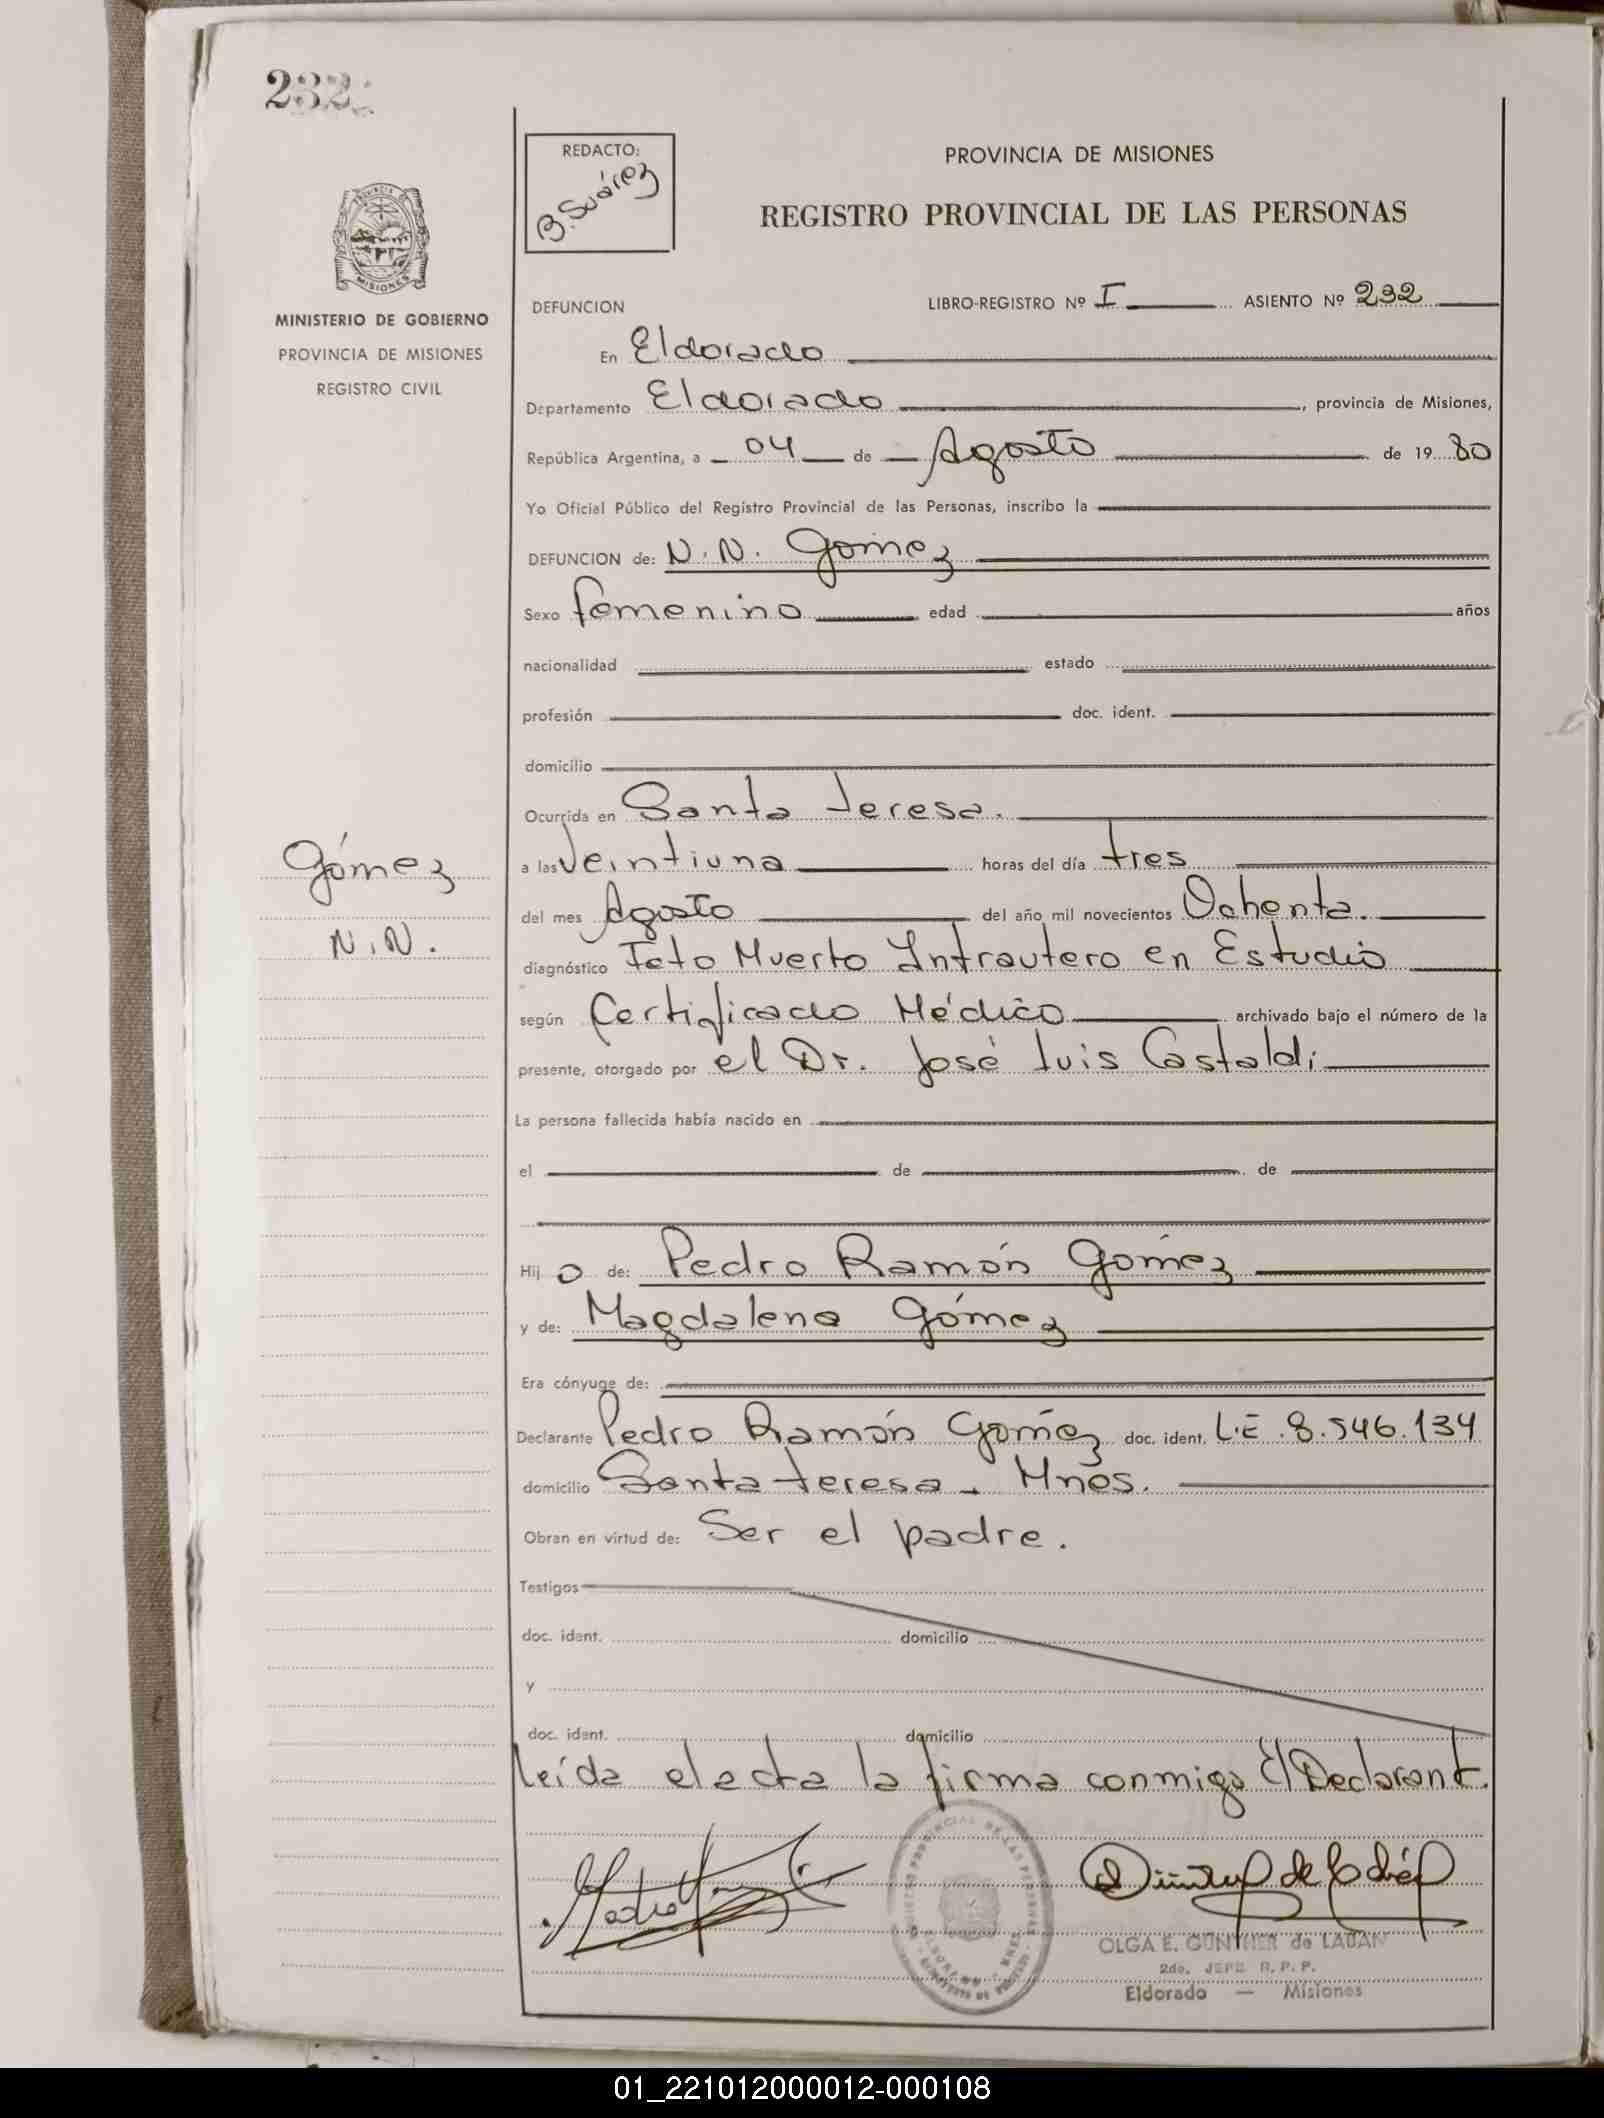 232
REDACTO:
B. Suárez
PROVINCIA DE MISIONES
REGISTRO PROVINCIAL DE LAS PERSONAS
PROVINCIA DE
MISIONES
MINISTERIO DE GOBIERNO
PROVINCIA DE MISIONES
REGISTRO CIVIL
DEFUNCION
LIBRO-REGISTRO Nº I ASIENTO Nº 232
En Eldorado
Departamento Eldorado, provincia de Misiones,
República Argentina, a 04 de Agosto de 19 80
Yo Oficial Público del Registro Provincial de las Personas, inscribo la
DEFUNCION de: N.N. Gómez
Sexo femenino edad años
nacionalidad estado
profesión doc. ident.
domicilio
Ocurrida en Santa Teresa.
Gómez
N.N.
a las Veintiuna horas del día tres
del mes Agosto del año mil novecientos Ochenta.
diagnóstico Feto Muerto Intrautero en Estudio
según Certificado Médico archivado bajo el número de la
presente, otorgado por el Dr. José Luis Castaldi
La persona fallecida había nacido en
el de de
Hij o de: Pedro Ramón Gómez
y de: Magdalena Gómez
Era cónyuge de:
Declarante Pedro Ramón Gómez doc. ident. L.E. 8.546.134
domicilio Santa Teresa - Mnes.
Obran en virtud de: Ser el padre.
Testigos
doc. ident. domicilio
y
doc. ident. domicilio
Leída el acta la firma conmigo El Declarant.
OLGA E. GUNTHER de LABAN
2do. JEFE R.P.P.
Eldorado — Misiones
01_221012000012-000108